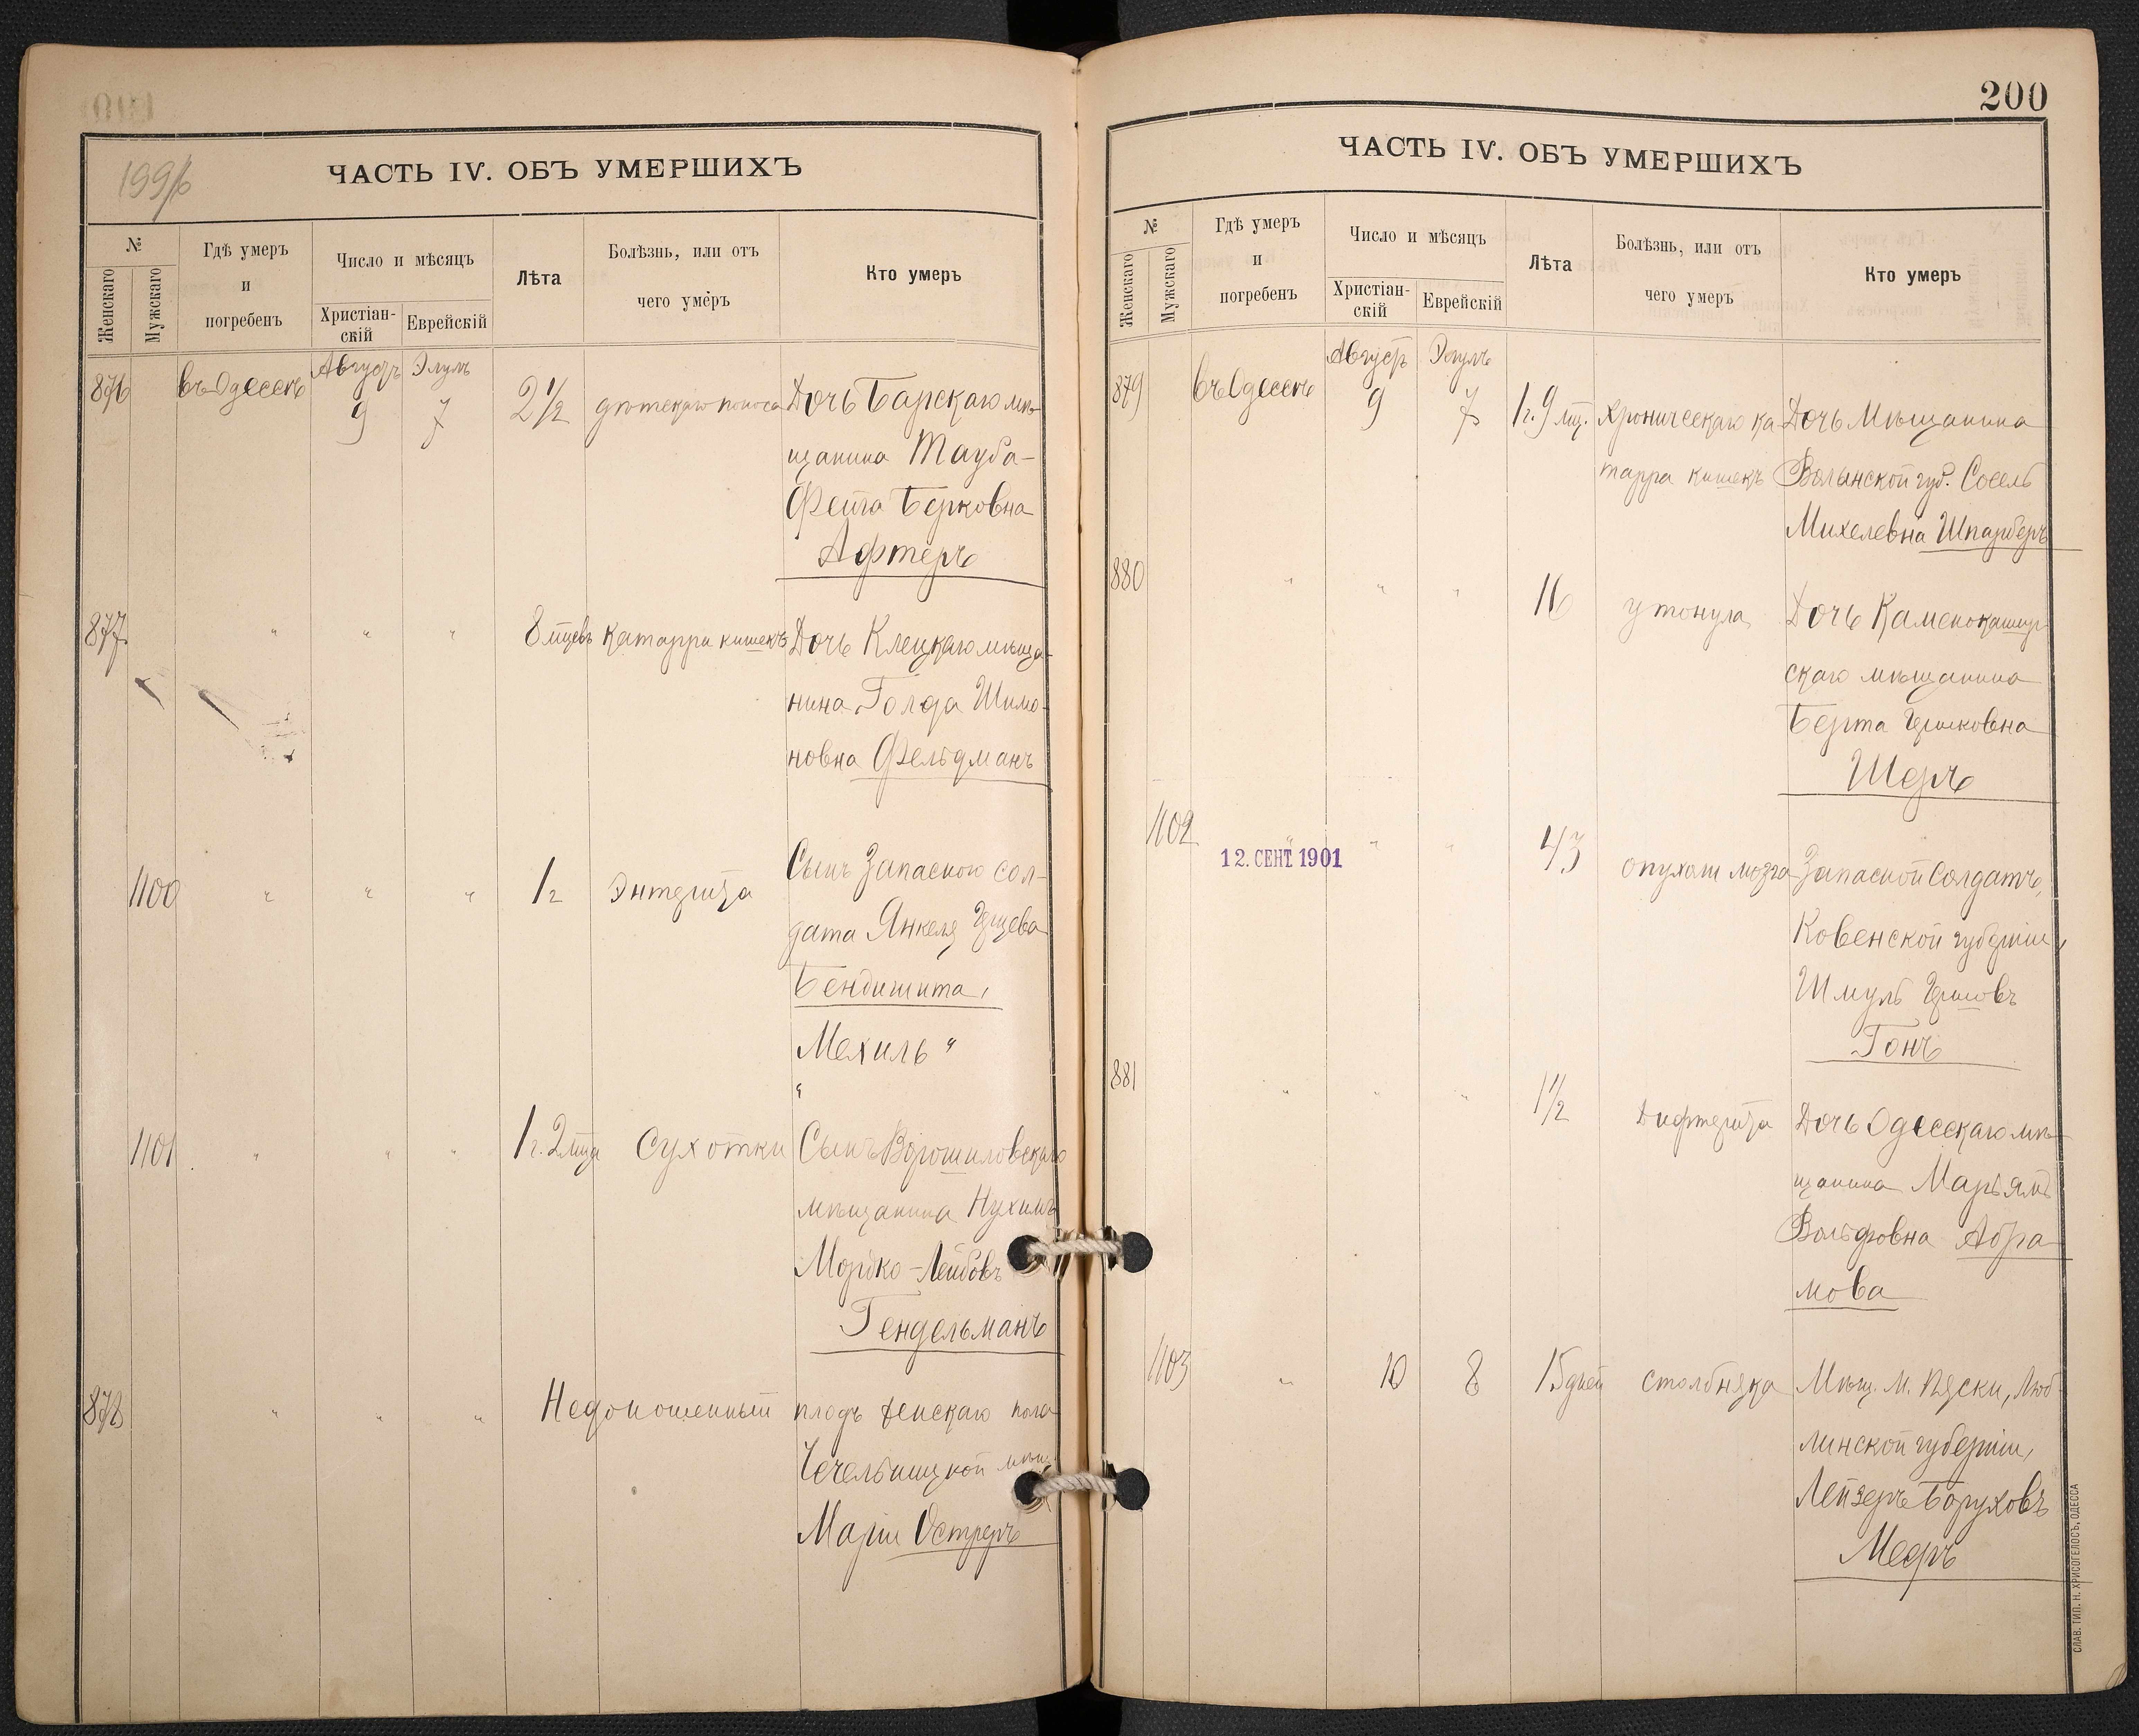 199/б
ЧАСТЬ IV. ОБЪ УМЕРШИХЪ
№
Женскаго
Мужскаго
Гдѣ умеръ
и
погребенъ
Число и мѣсяцъ
Христіан-
скій
Еврейскій
Лѣта
Болѣзнь, или отъ
чего умеръ
Кто умеръ
876 въ Одессѣ Августъ 9 Элулъ 7 2 1/2 дѣтскаго поноса Дочь Барскаго мѣ-
щанина Тауба-
Фейга Берковна
Афтеръ
877 " " " 8 мцевъ Катарра кишекъ Дочь Клецкаго мѣща-
нина Голда Шимо-
новна Фельдманъ
1100 " " " 1 г Энтерита Сынъ Запасного сол-
дата Янкеля
Бендишта,
Мехиль "
"
1101 " " " 1 г. 2 мца Сухотки Сынъ Ворошиловскаго
мѣщанина Нухимъ
Мордко-Лейбовъ
Гендельманъ
878 " " " Недоношенный плодъ женскаго пола
Чечельницкой мѣщ.
Маріи Остреръ
200
ЧАСТЬ IV. ОБЪ УМЕРШИХЪ
№
Женскаго
Мужскаго
Гдѣ умеръ
и
погребенъ
Число и мѣсяцъ
Христіан-
скій
Еврейскій
Лѣта
Болѣзнь, или отъ
чего умеръ
Кто умеръ
879 въ Одессѣ Августъ 9 Элулъ 7 1 г. 9 мц. Хроническаго ка- Дочь Мѣщанина
тарра кишекъ Волынской губ. Сосель
Михелевна
880 " " " 16 утонула Дочь Каменокашир-
скаго мѣщанина
Берта Гершковна
Шеръ
1102 " " " 43 опухоли мозга Запасной Солдатъ,
12. СЕНТ. 1901
Ковенской губерніи,
Шмуль Гершовъ
Гонъ
881 " " " 1 1/2 Дифтерита Дочь Одесскаго мѣ-
щанина Марьямъ
Вольфовна Абра-
мова
1103 " 10 8 15 дней столбняка Мѣщ. м. Пяски, Люб-
линской губерніи,
Лейзеръ Боруховъ
Медръ
СЛАВ. ТИП. Н. ХРИСОГЕЛОСЪ, ОДЕССА